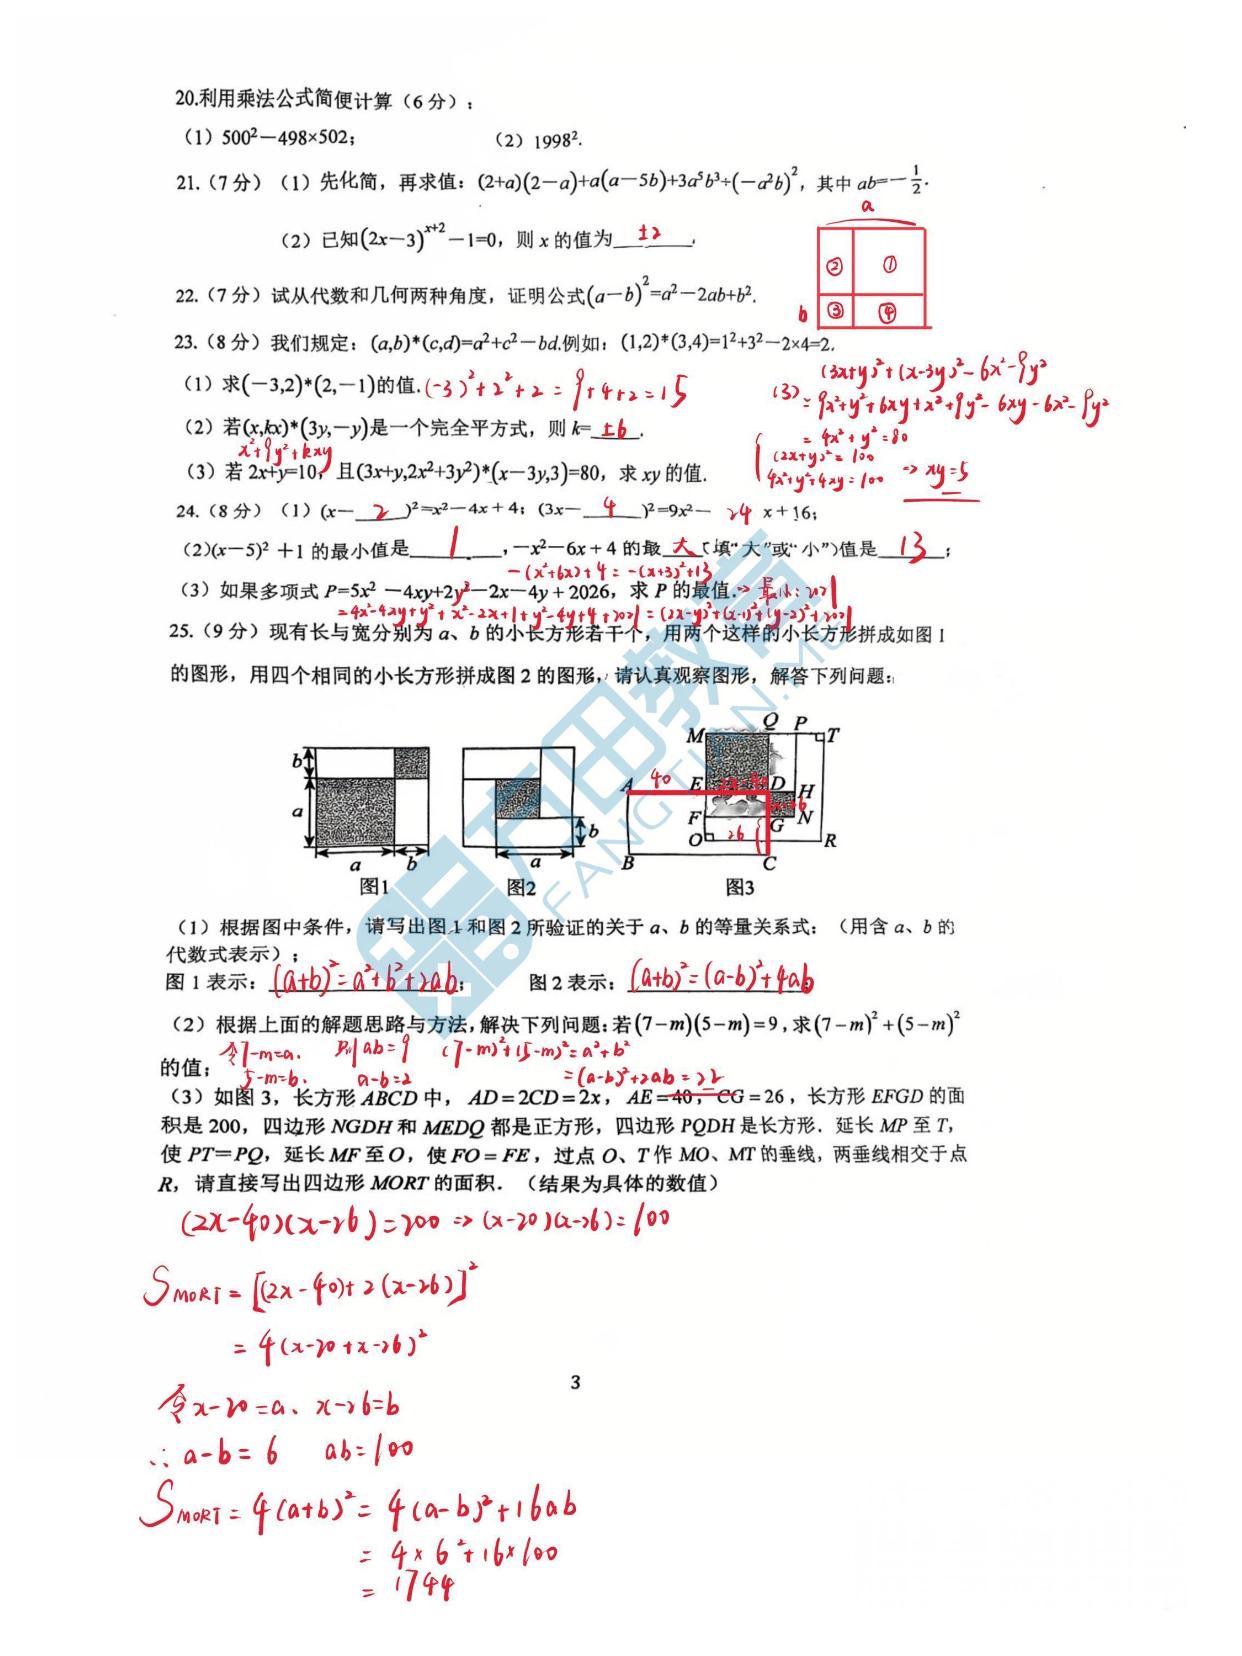 20.利用乘法公式简便计算(6分):
(1)500²－498×502; (2)1998².
21.(7分)(1)先化简，再求值：(2+a)(2－a)+a(a－5b)+3a⁵b³÷(－a²b)²，其中 ab=－1/2.
a
(2)已知(2x－3)^(x+2)－1=0，则 x 的值为 ±2 .
② ①
22.(7分)试从代数和几何两种角度，证明公式(a－b)²=a²－2ab+b².
b ③ ④
23.(8分)我们规定：(a,b)*(c,d)=a²+c²－bd.例如：(1,2)*(3,4)=1²+3²－2×4=2.
(1)求(－3,2)*(2,－1)的值. (-3)²+2²+2=9+4+2=15
(3) (3x+y)²+(x-3y)²-6x²-9y²
=9x²+y²+6xy+x²+9y²-6xy-6x²-9y²
(2)若(x,kx)*(3y,－y)是一个完全平方式，则 k= ±6 .
=4x²+y²=80
x²+9y²+kxy
(2x+y)²=100
(3)若 2x+y=10，且(3x+y,2x²+3y²)*(x－3y,3)=80，求 xy 的值.
4x²+y²+4xy=100 => xy=5
24.(8分)(1)(x－ 2 )²=x²－4x＋4；(3x－ 4 )²=9x²－ 24 x＋16；
(2)(x－5)²＋1 的最小值是 1 ，－x²－6x＋4 的最 大 (填“大”或“小”)值是 13 ；
-(x²+6x)+4=-(x+3)²+13
(3)如果多项式 P=5x²－4xy+2y²－2x－4y＋2026，求 P 的最值. => 最小：2021
=4x²-4xy+y²+x²-2x+1+y²-4y+4+2021=(2x-y)²+(x-1)²+(y-2)²+2021
25.(9分)现有长与宽分别为 a、b 的小长方形若干个，用两个这样的小长方形拼成如图1
的图形，用四个相同的小长方形拼成图2的图形，请认真观察图形，解答下列问题：
b a a b 图1
b a 图2
M Q P T
A 40 E 2x-40 D H
F x-26 G N
O 26 R
B C
图3
(1)根据图中条件，请写出图1和图2所验证的关于 a、b 的等量关系式：(用含 a、b 的
代数式表示)；
图1表示： (a+b)²=a²+b²+2ab ； 图2表示： (a+b)²=(a-b)²+4ab
(2)根据上面的解题思路与方法，解决下列问题：若(7－m)(5－m)=9，求(7－m)²＋(5－m)²
的值； 令7-m=a、 则ab=9 (7-m)²+(5-m)²=a²+b²
5-m=b、 a-b=2 =(a-b)²+2ab=22
(3)如图3，长方形 ABCD 中，AD=2CD=2x，AE=40，CG=26，长方形 EFGD 的面
积是200，四边形 NGDH 和 MEDQ 都是正方形，四边形 PQDH 是长方形．延长 MP 至 T，
使 PT=PQ，延长 MF 至 O，使 FO=FE，过点 O、T 作 MO、MT 的垂线，两垂线相交于点
R，请直接写出四边形 MORT 的面积．(结果为具体的数值)
(2x-40)(x-26)=200 => (x-20)(x-26)=100
S MORT = [(2x-40)+2(x-26)]²
= 4(x-20+x-26)²
3
令x-20=a、x-26=b
∴ a-b=6 ab=100
S MORT = 4(a+b)²=4(a-b)²+16ab
= 4×6²+16×100
= 1744
方田教育
FANGTIAN.MU